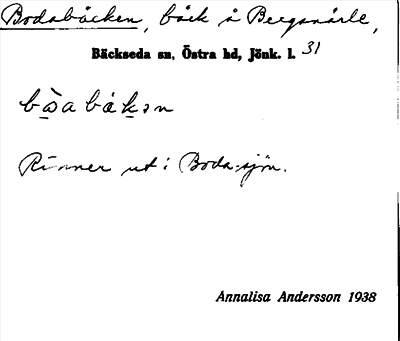 Bodabäcken, bäck å Bergsnärle,
Bäckseda sn, Östra hd, Jönk. l. 31
Rinner ut i Boda-sjön.
Annalisa Andersson 1938